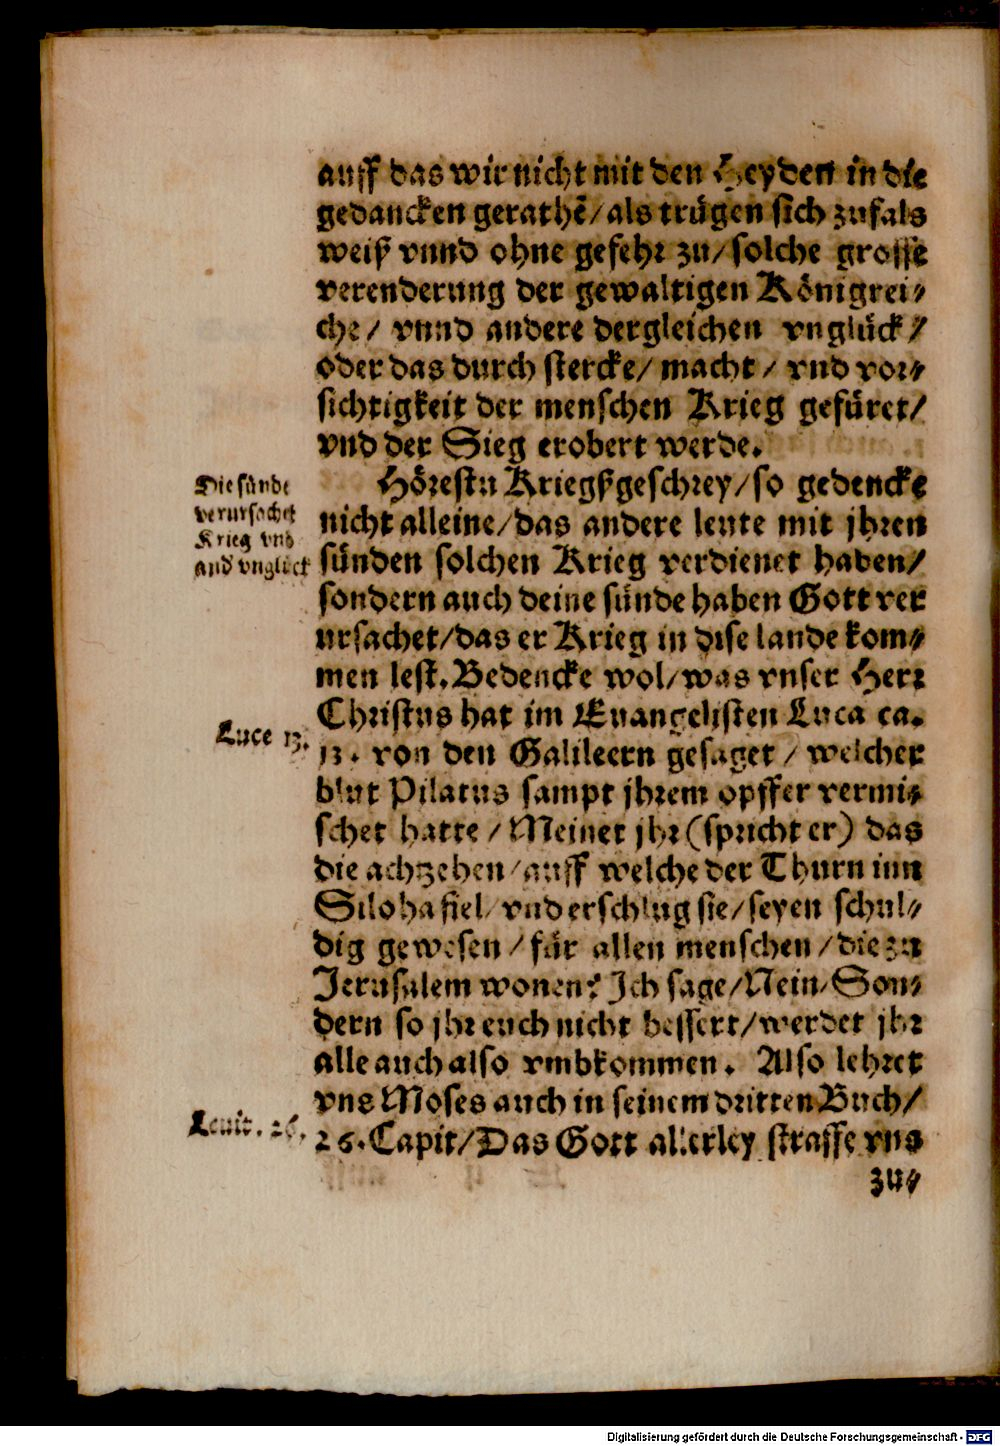 auff das wir nicht mit den Heyden in die
gedancken gerathē/als trügen sich zufals
weiß vnnd ohne gefehr zu/solche grosse
verenderung der gewaltigen Königrei⸗
che/ vnnd andere dergleichen vnglück/
oder das durch stercke/ macht/ vnd vor⸗
sichtigkeit der menschen Krieg gefüret/
vnd der Sieg erobert werde.
Hörestu Kriegßgeschrey/so gedencke
nicht alleine/das andere leute mit jhren
sünden solchen Krieg verdienet haben/
sondern auch deine sünde haben Gott ver
ursachet/das er Krieg in dise lande kom⸗
men lest. Bedencke wol/was vnser Herr
Christus hat im Euangelisten Luca ca.
13. von den Galileern gesaget/ welcher
blut Pilatus sampt jhrem opffer vermi⸗
schet hatte/ Meinet jhr (spricht er) das
die achtzehen/auff welche der Thurn inn
Siloha fiel/ vnd erschlug sie/seyen schul⸗
dig gewesen/ für allen menschen/die zu
Jerusalem wonen? Ich sage/Nein/Son⸗
dern so jhr euch nicht bessert/werdet jhr
alle auch also vmbkommen. Also lehret
vns Moses auch in seinem dritten Buch/
26. Capit/Das Gott allerley straffe vns
zu⸗
Die sünde
verursachet
Krieg vnd
and vnglück
Luce 13.
Leuit. 26.
Digitalisierung gefördert durch die Deutsche Forschungsgemeinschaft - DFG